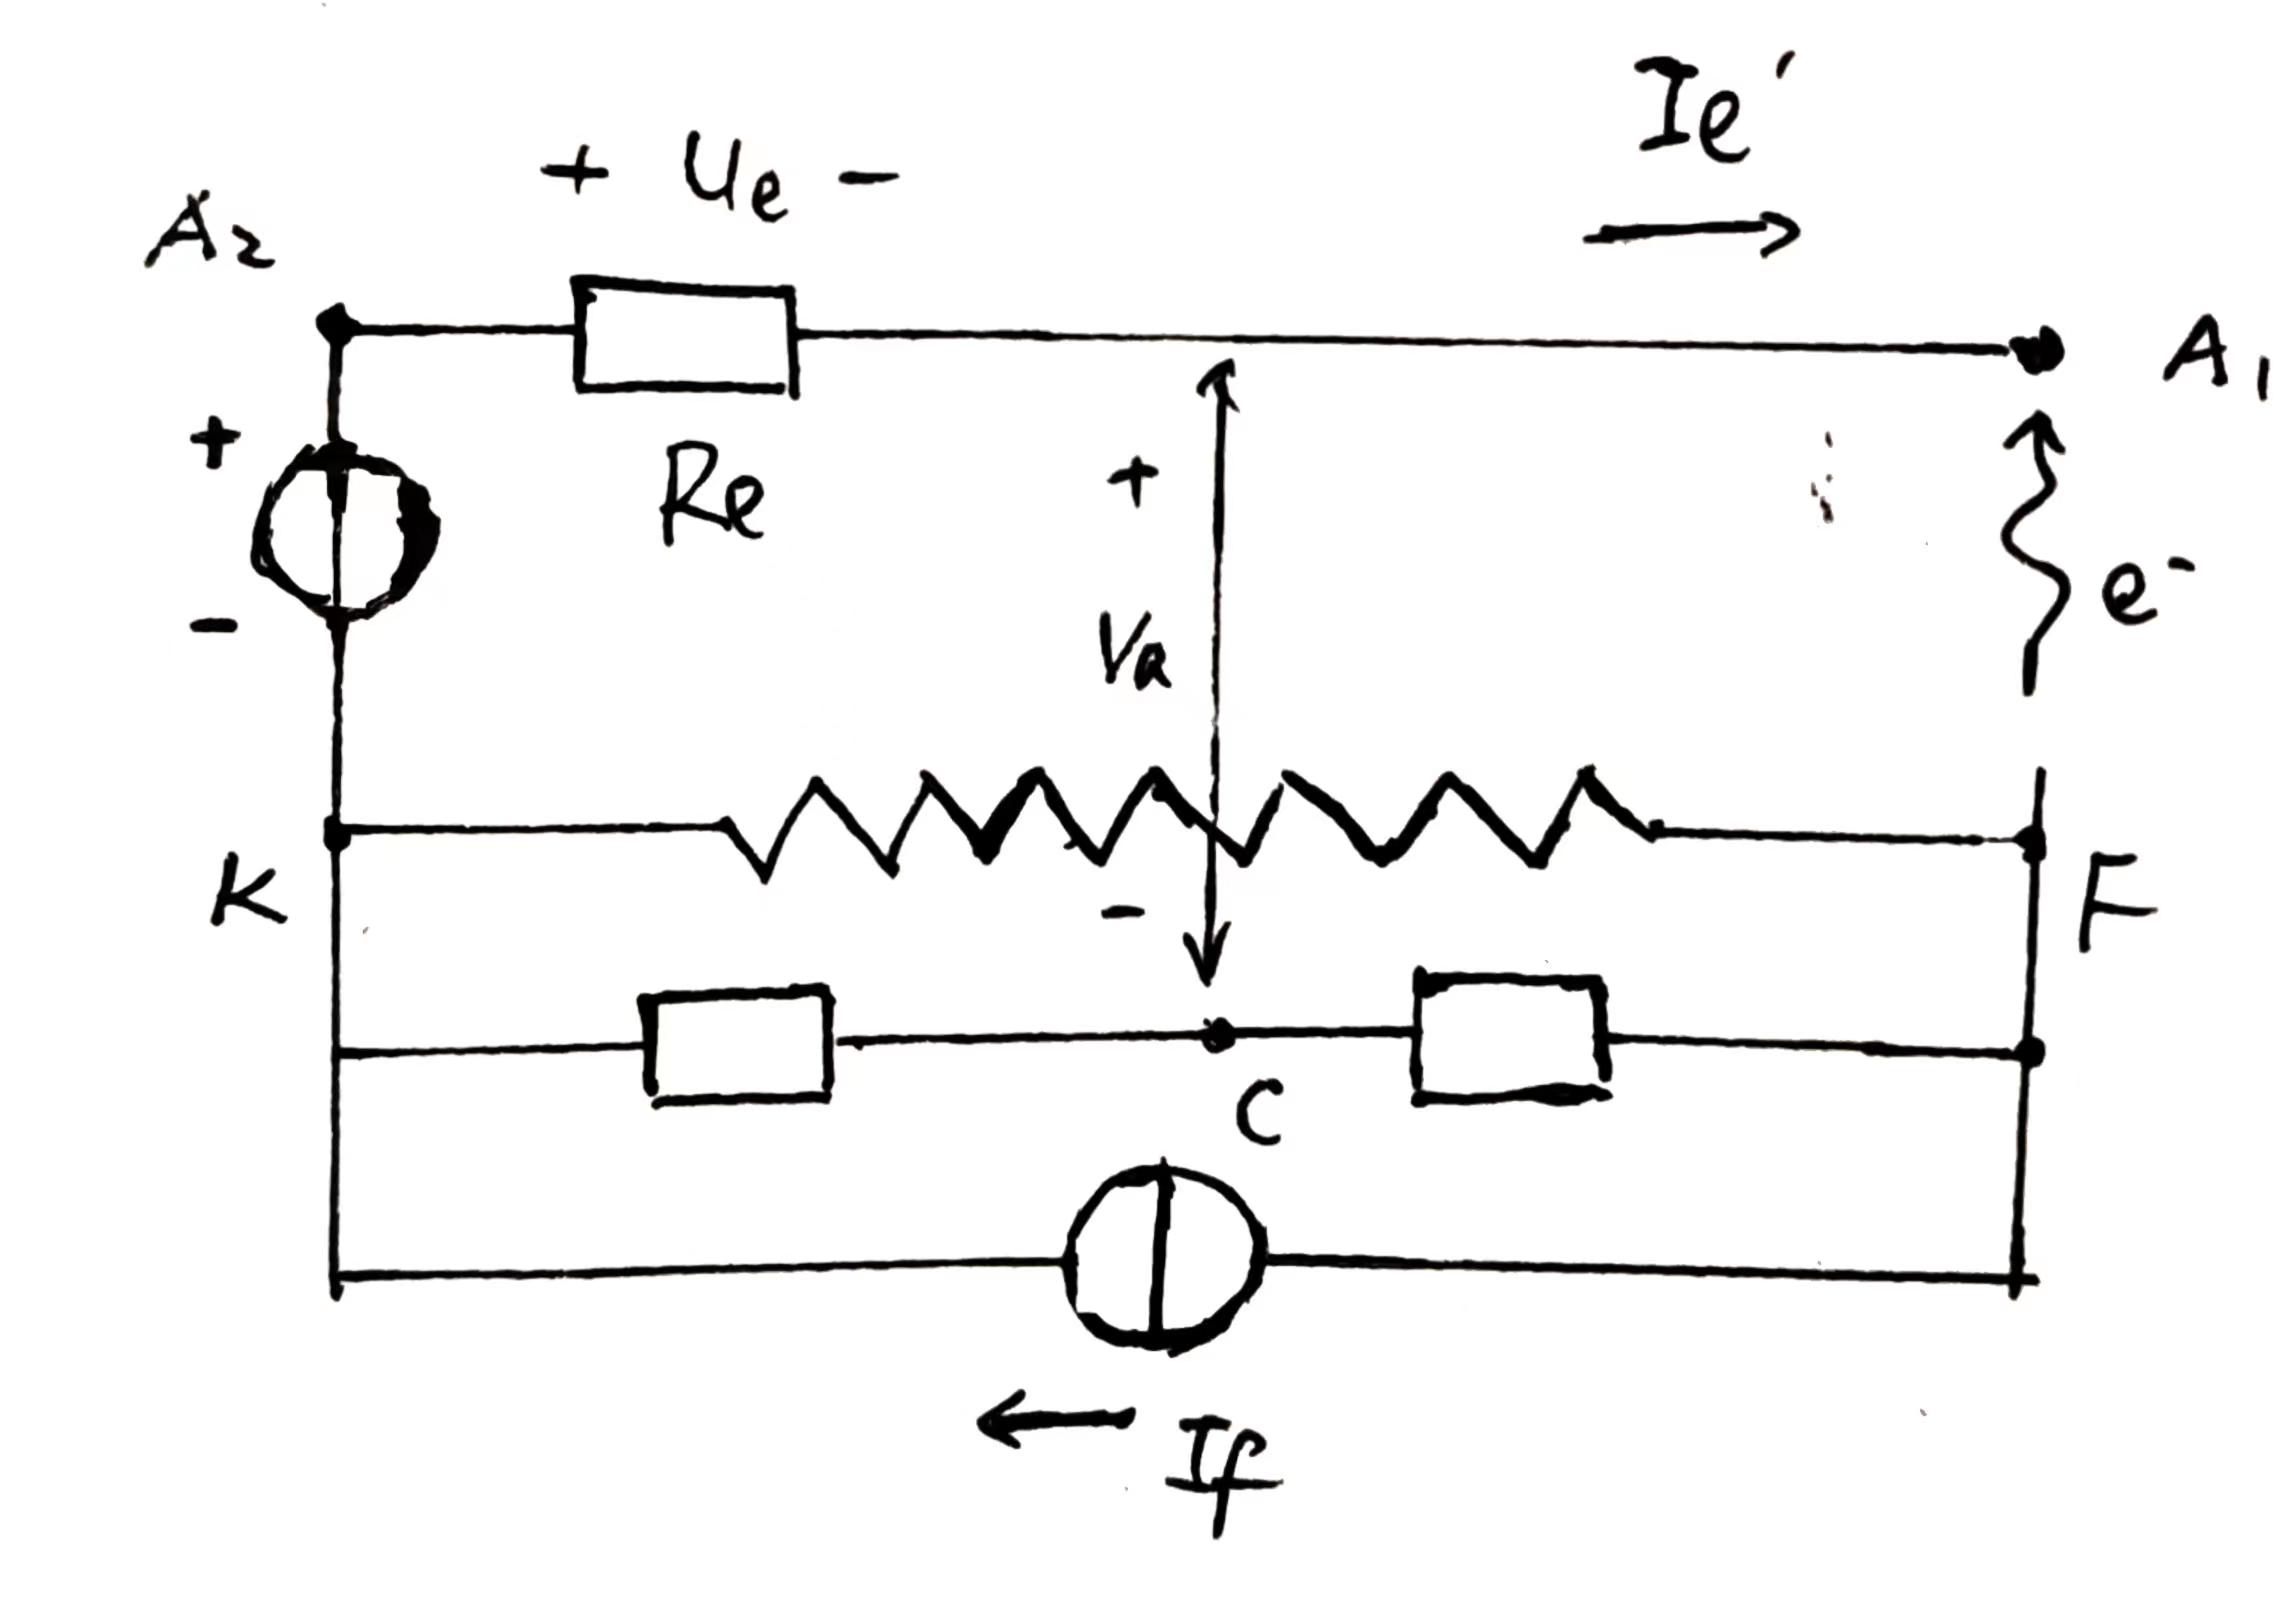 Ie'
+ Ue -
A2
A1
+
Re
+
e-
-
Va
K
-
F
C
If